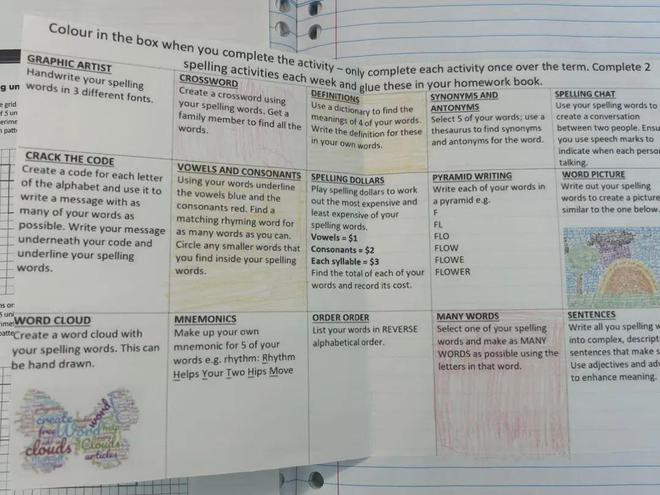 Colour in the box when you complete the activity – only complete each activity once over the term. Complete 2
spelling activities each week and glue these in your homework book.
GRAPHIC ARTIST
Handwrite your spelling
words in 3 different fonts.
CROSSWORD
Create a crossword using
your spelling words. Get a
family member to find all the
words.
DEFINITIONS
Use a dictionary to find the
meanings of 4 of your words.
Write the definition for these
in your own words.
SYNONYMS AND
ANTONYMS
Select 5 of your words; use a
thesaurus to find synonyms
and antonyms for the word.
SPELLING CHAT
Use your spelling words to
create a conversation
between two people. Ensu
you use speech marks to
indicate when each perso
talking.
CRACK THE CODE
Create a code for each letter
of the alphabet and use it to
write a message with as
many of your words as
possible. Write your message
underneath your code and
underline your spelling
words.
VOWELS AND CONSONANTS
Using your words underline
the vowels blue and the
consonants red. Find a
matching rhyming word for
as many words as you can.
Circle any smaller words that
you find inside your spelling
words.
SPELLING DOLLARS
Play spelling dollars to work
out the most expensive and
least expensive of your
spelling words.
Vowels = $1
Consonants = $2
Each syllable = $3
Find the total of each of your
words and record its cost.
PYRAMID WRITING
Write each of your words in
a pyramid e.g.
F
FL
FLO
FLOW
FLOWE
FLOWER
WORD PICTURE
Write out your spelling
words to create a picture
similar to the one below.
WORD CLOUD
Create a word cloud with
your spelling words. This can
be hand drawn.
create
Word
word
clouds
Clouds
articles
MNEMONICS
Make up your own
mnemonic for 5 of your
words e.g. rhythm: Rhythm
Helps Your Two Hips Move
ORDER ORDER
List your words in REVERSE
alphabetical order.
MANY WORDS
Select one of your spelling
words and make as MANY
WORDS as possible using the
letters in that word.
SENTENCES
Write all you spelling w
into complex, descript
sentences that make s
Use adjectives and adv
to enhance meaning.